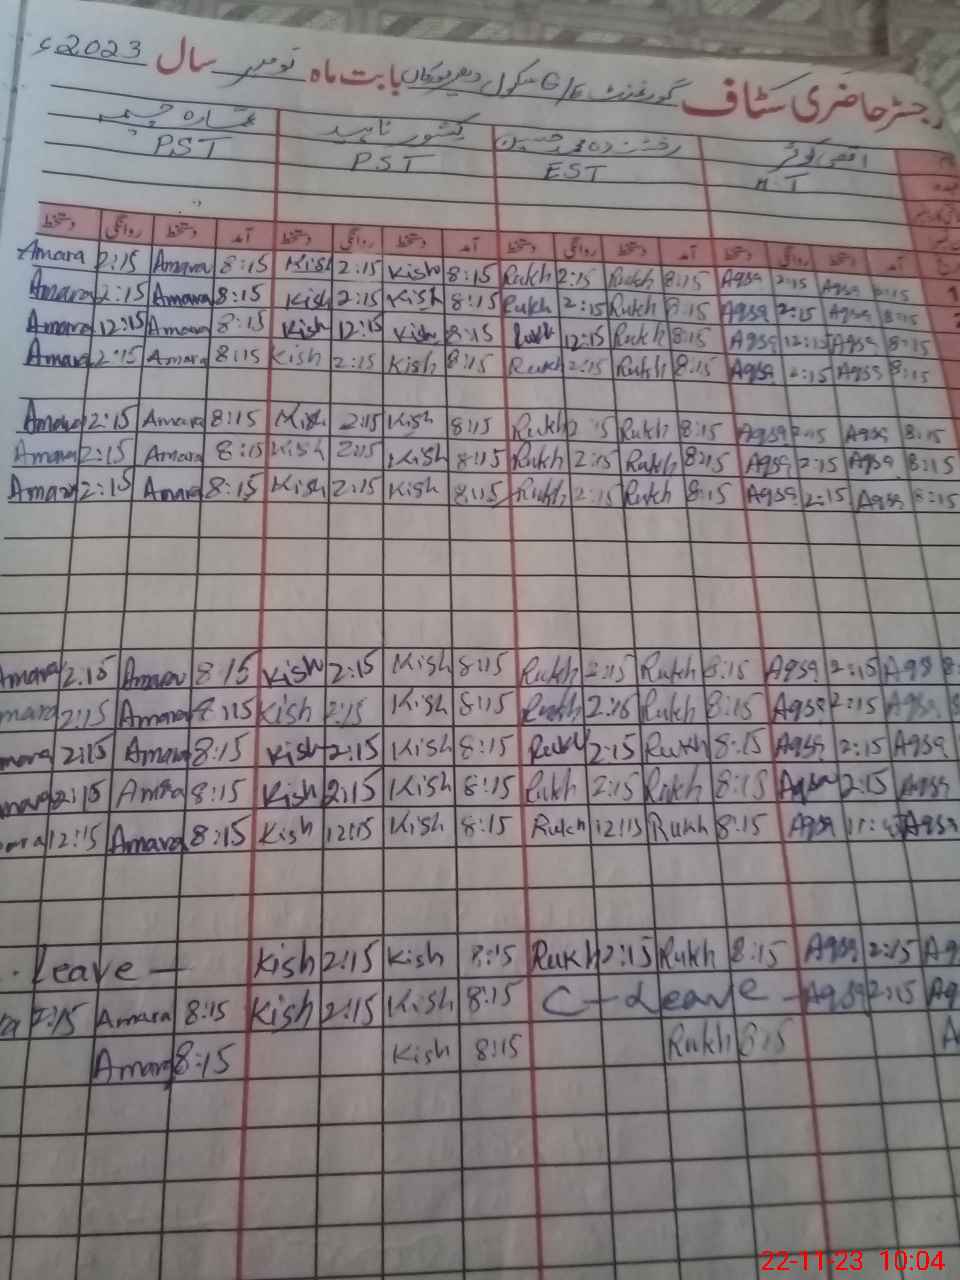 رجسٹر حاضری سٹاف گورنمنٹ G/E سکول بابت ماہ نومبر سال 2023ء
اقصیٰ کوثر رخشندہ حسین کشور ناہید عمارہ
H.T EST PST PST
آمد دستخط روانگی دستخط آمد دستخط روانگی دستخط آمد دستخط روانگی دستخط آمد دستخط روانگی دستخط
Amara 2:15 Amara 8:15 Kish 2:15 Kish 8:15 Rukh 2:15 Rukh 8:15 Aqsa 2:15 Aqsa 8:15
Amara 2:15 Amara 8:15 Kish 2:15 Kish 8:15 Rukh 2:15 Rukh 8:15 Aqsa 2:15 Aqsa 8:15
Amara 12:15 Amara 8:15 Kish 12:15 Kish 8:15 Rukh 12:15 Rukh 8:15 Aqsa 12:15 Aqsa 8:15
Amara 2:15 Amara 8:15 Kish 2:15 Kish 8:15 Rukh 2:15 Rukh 8:15 Aqsa 2:15 Aqsa 8:15
Amara 2:15 Amara 8:15 Kish 2:15 Kish 8:15 Rukh 2:15 Rukh 8:15 Aqsa 2:15 Aqsa 8:15
Amara 2:15 Amara 8:15 Kish 2:15 Kish 8:15 Rukh 2:15 Rukh 8:15 Aqsa 2:15 Aqsa 8:15
Amara 2:15 Amara 8:15 Kish 2:15 Kish 8:15 Rukh 2:15 Rukh 8:15 Aqsa 2:15 Aqsa 8:15
Amara 2:15 Amara 8:15 Kish 2:15 Kish 8:15 Rukh 2:15 Rukh 8:15 Aqsa 2:15 Aqs 8:
mara 2:15 Amara 8:15 Kish 2:15 Kish 8:15 Rukh 2:15 Rukh 8:15 Aqsa 2:15 Aqsa
mara 2:15 Amara 8:15 Kish 2:15 Kish 8:15 Rukh 2:15 Rukh 8:15 Aqsa 2:15 Aqsa
mara 2:15 Amra 8:15 Kish 2:15 Kish 8:15 Rukh 2:15 Rukh 8:15 Aqsa 2:15 Aqsa
ara 12:15 Amara 8:15 Kish 12:15 Kish 8:15 Rukh 12:15 Rukh 8:15 Aqsa Aqsa
Leave — Kish 2:15 Kish 8:15 Rukh 2:15 Rukh 8:15 Aqsa 2:15 Aq
ra 2:15 Amara 8:15 Kish 2:15 Kish 8:15 C-Leave - Aqsa 2:15 Aq
Amara 8:15 Kish 8:15 Rukh 8:15 A
22-11-23 10:04